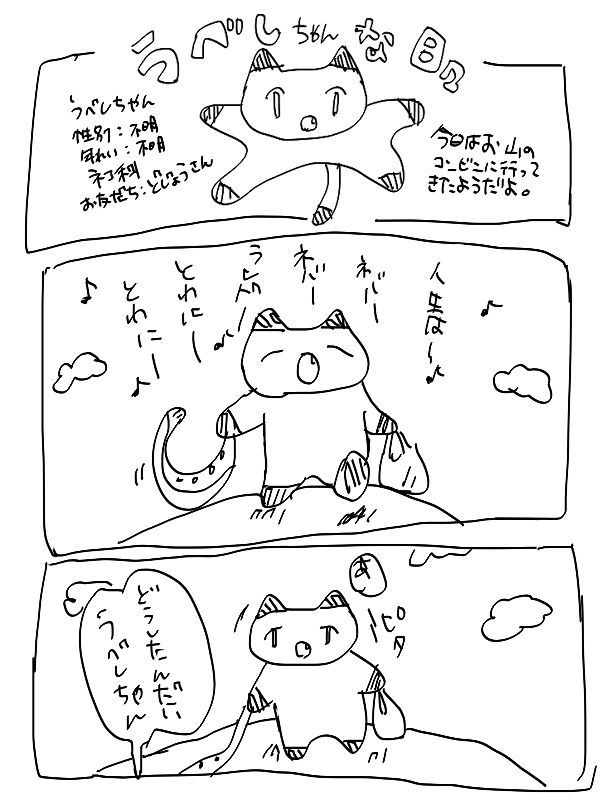 うべしちゃんな日々
うべしちゃん
性別：不明
年れい：不明
ネコ科
お友だち：どじょうさん
今日はお山の
コンビニに行って
きたようだよ。
人生は〜♪
ネバー
ネバー
うべし〜♪
とわにー
とわにー♪
あ
ピタ
どうしたんだい
うべしちゃん